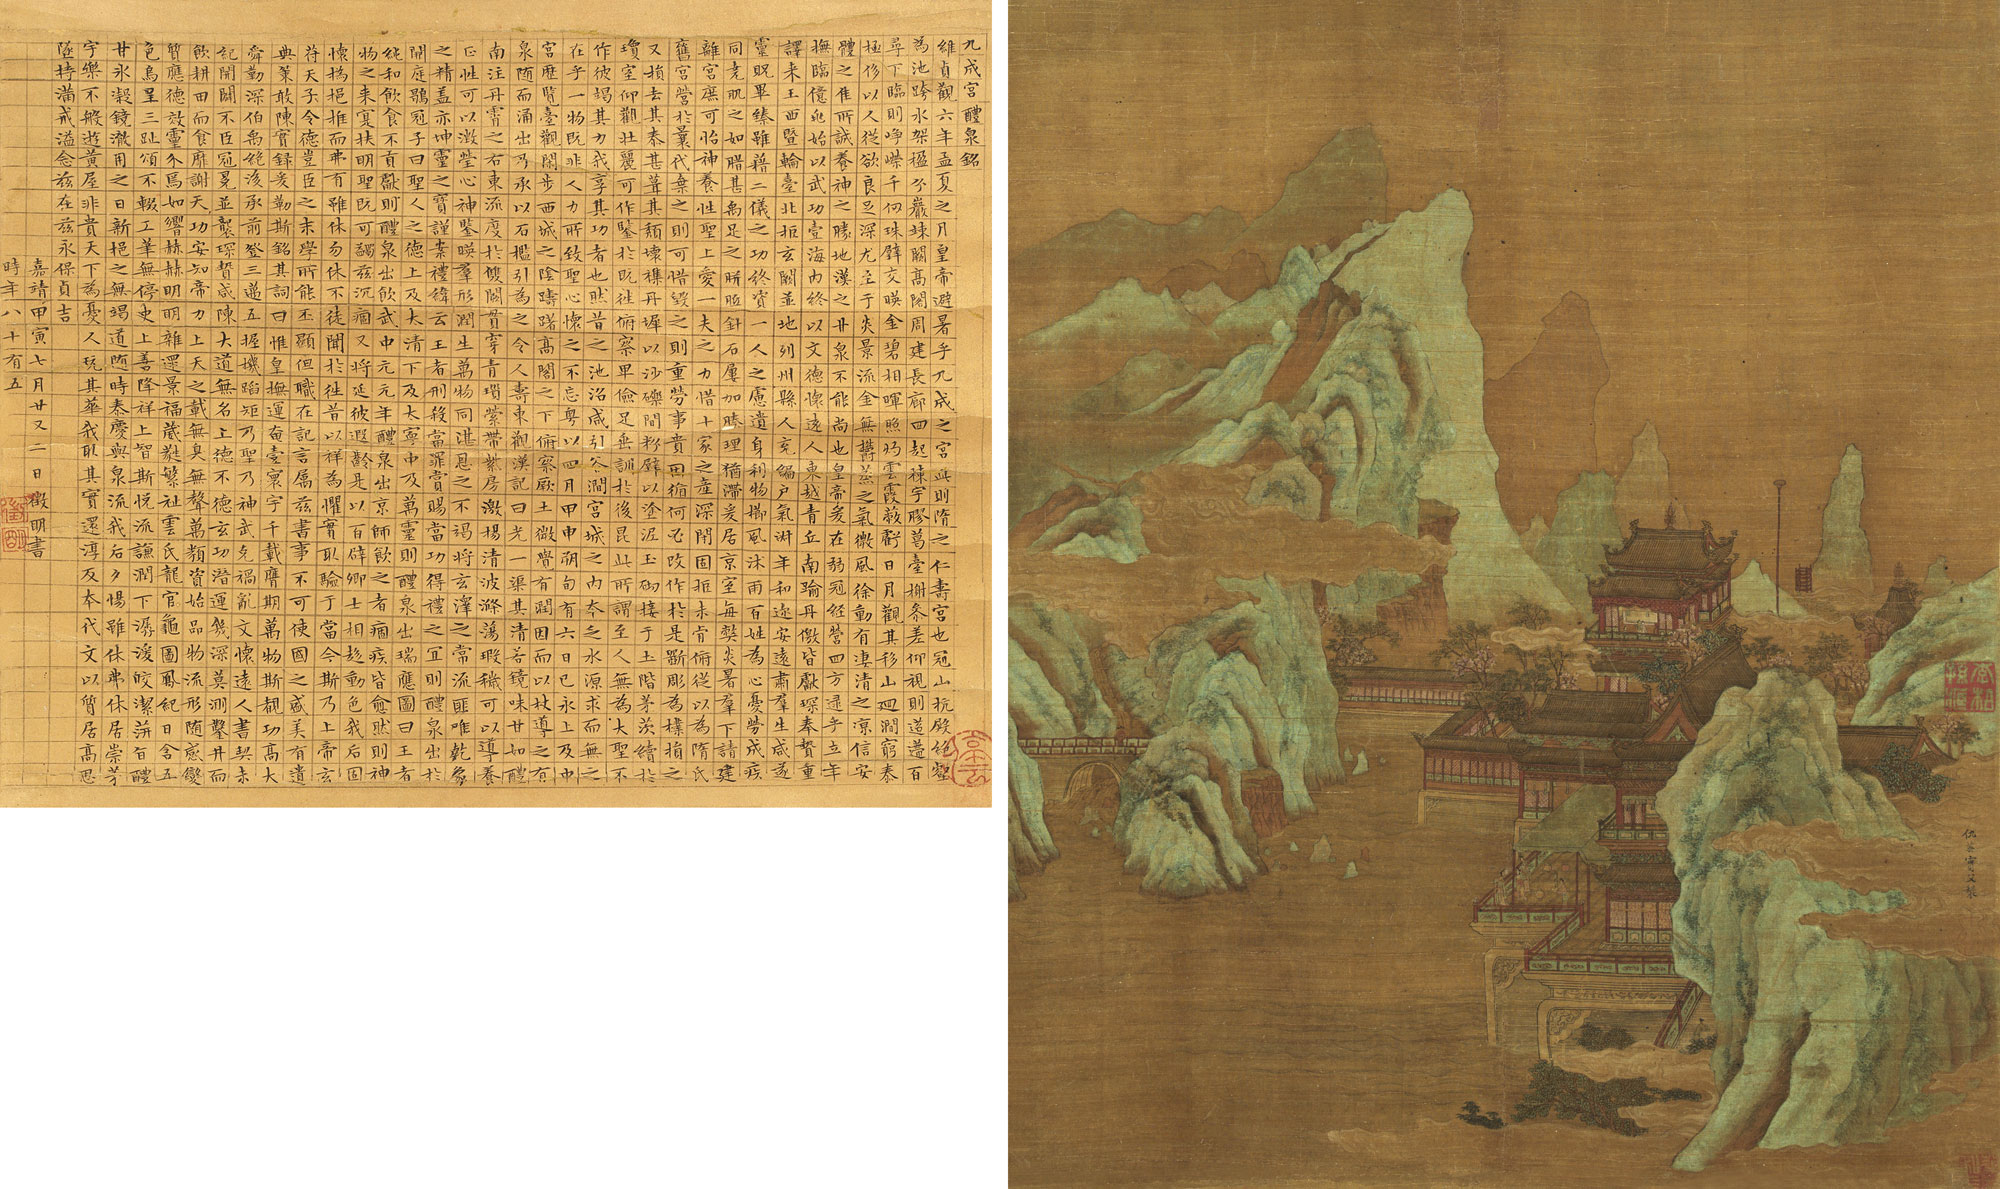 九成宮醴泉銘
維貞觀六年孟夏之月皇帝避暑乎九成之宮此則隋之仁壽宮也冠山抗殿絕壑
為池跨水架楹分巖竦闕高閣周建長廊四起棟宇膠葛臺榭參差仰視則迢遰百
尋下臨則崢嶸千仞珠璧交暎金碧相暉照灼雲霞蔽虧日月觀其移山迴澗窮泰
極侈以人從欲良足深尤至于炎景流金無欝蒸之氣微風徐動有凄清之凉信安
體之佳所誠養神之勝地漢之甘泉不能尚也皇帝爰在弱冠經營四方逮乎立年
撫臨億兆始以武功壹海內終以文德懷遠人東越青丘南踰丹儌皆獻琛奉贄重
譯来王西暨輪臺北拒玄闕並地列州縣人充編戶氣淑年和迩安遠肅羣生咸遂
靈貺畢臻雖藉二儀之功終資一人之慮遺身利物櫛風沐雨百姓為心憂勞成疾
同堯肌之如腊甚禹足之胼胝針石屢加腠理猶滯爰居京室每弊炎暑羣下請建
離宮庶可怡神養性聖上愛一夫之力惜十家之產深閉固拒未肯俯從以為隋氏
舊宮營於曩代棄之則可惜毀之則重勞事貴因循何必改作於是斵彫為樸損之
又損去其泰甚葺其頹壞雜丹墀以沙礫間粉壁以塗泥玉砌接于土階茅茨續於
瓊室仰觀壯麗可作鑒於既往俯察卑儉足垂訓於後昆此所謂至人無為大聖不
作彼竭其力我享其功者也然昔之池沼咸引谷澗宮城之內本乏水源求而無之
在乎一物既非人力所致聖心懷之不忘粵以四月甲申朔旬有六日己亥上及中
宮歷覽臺觀閑步西城之陰躊躇高閣之下俯察厥土微覺有潤因而以杖導之有
泉随而涌出乃承以石檻引為之令人壽東觀漢記曰光一渠其清若鏡味甘如醴
南注丹霄之右東流度於雙闕貫穿青瑣縈帶紫房激揚清波滌蕩瑕穢可以導養
正性可以澂瑩心神鑒暎羣形潤生萬物同湛恩之不竭將玄澤之常流匪唯乾象
之精盖亦坤靈之寶謹案禮緯云王者刑殺當罪賞賜當功得禮之宜則醴泉出於
闕庭鶡冠子曰聖人之德上及太清下及太寧中及萬靈則醴泉出瑞應圖曰王者
純和飲食不貢獻則醴泉出飲武中元元年醴泉出京師飲之者痼疾皆愈然則神
物之来寔扶明聖既可蠲茲沉痼又將延彼遐齡是以百辟卿士相趍動色我后固
懷撝挹推而弗有雖休勿休不徒聞於往昔以祥為懼實取驗于當今斯乃上帝玄
符天子令德豈臣之末學所能丕顯但職在記言屬茲書事不可使國之盛美有遺
典策敢陳實錄爰勒斯銘其詞曰惟皇撫運奄壹寰宇千載膺期萬物斯覩功高大
舜勤深伯禹絕後承前登三邁五握機蹈矩乃聖乃神武克禍亂文懷遠人書契未
紀開闢不臣冠冕並襲琛贄咸陳大道無名上德不德玄功潛運幾深莫測鑿井而
飲耕田而食靡謝天功安知帝力上天之載無臭無聲萬類資始品物流形随感變
質應德效靈介焉如響赫赫明明雜遝景福葳蕤繁祉雲氏龍官龜圖鳳紀日含五
色烏呈三趾頌不輟工筆無停史上善降祥上智斯悅流謙潤下潺湲皎潔蓱旨醴
甘氷凝鏡澈用之日新挹之無竭道随時泰慶與泉流我后夕惕雖休弗休居崇茅
宇樂不般遊黃屋非貴天下為憂人玩其華我取其實還淳反本代文以質居高思
墜持滿戒溢念茲在茲永保貞吉
嘉靖甲寅七月廿又二日徵明書
時年八十有五
仇英實父製